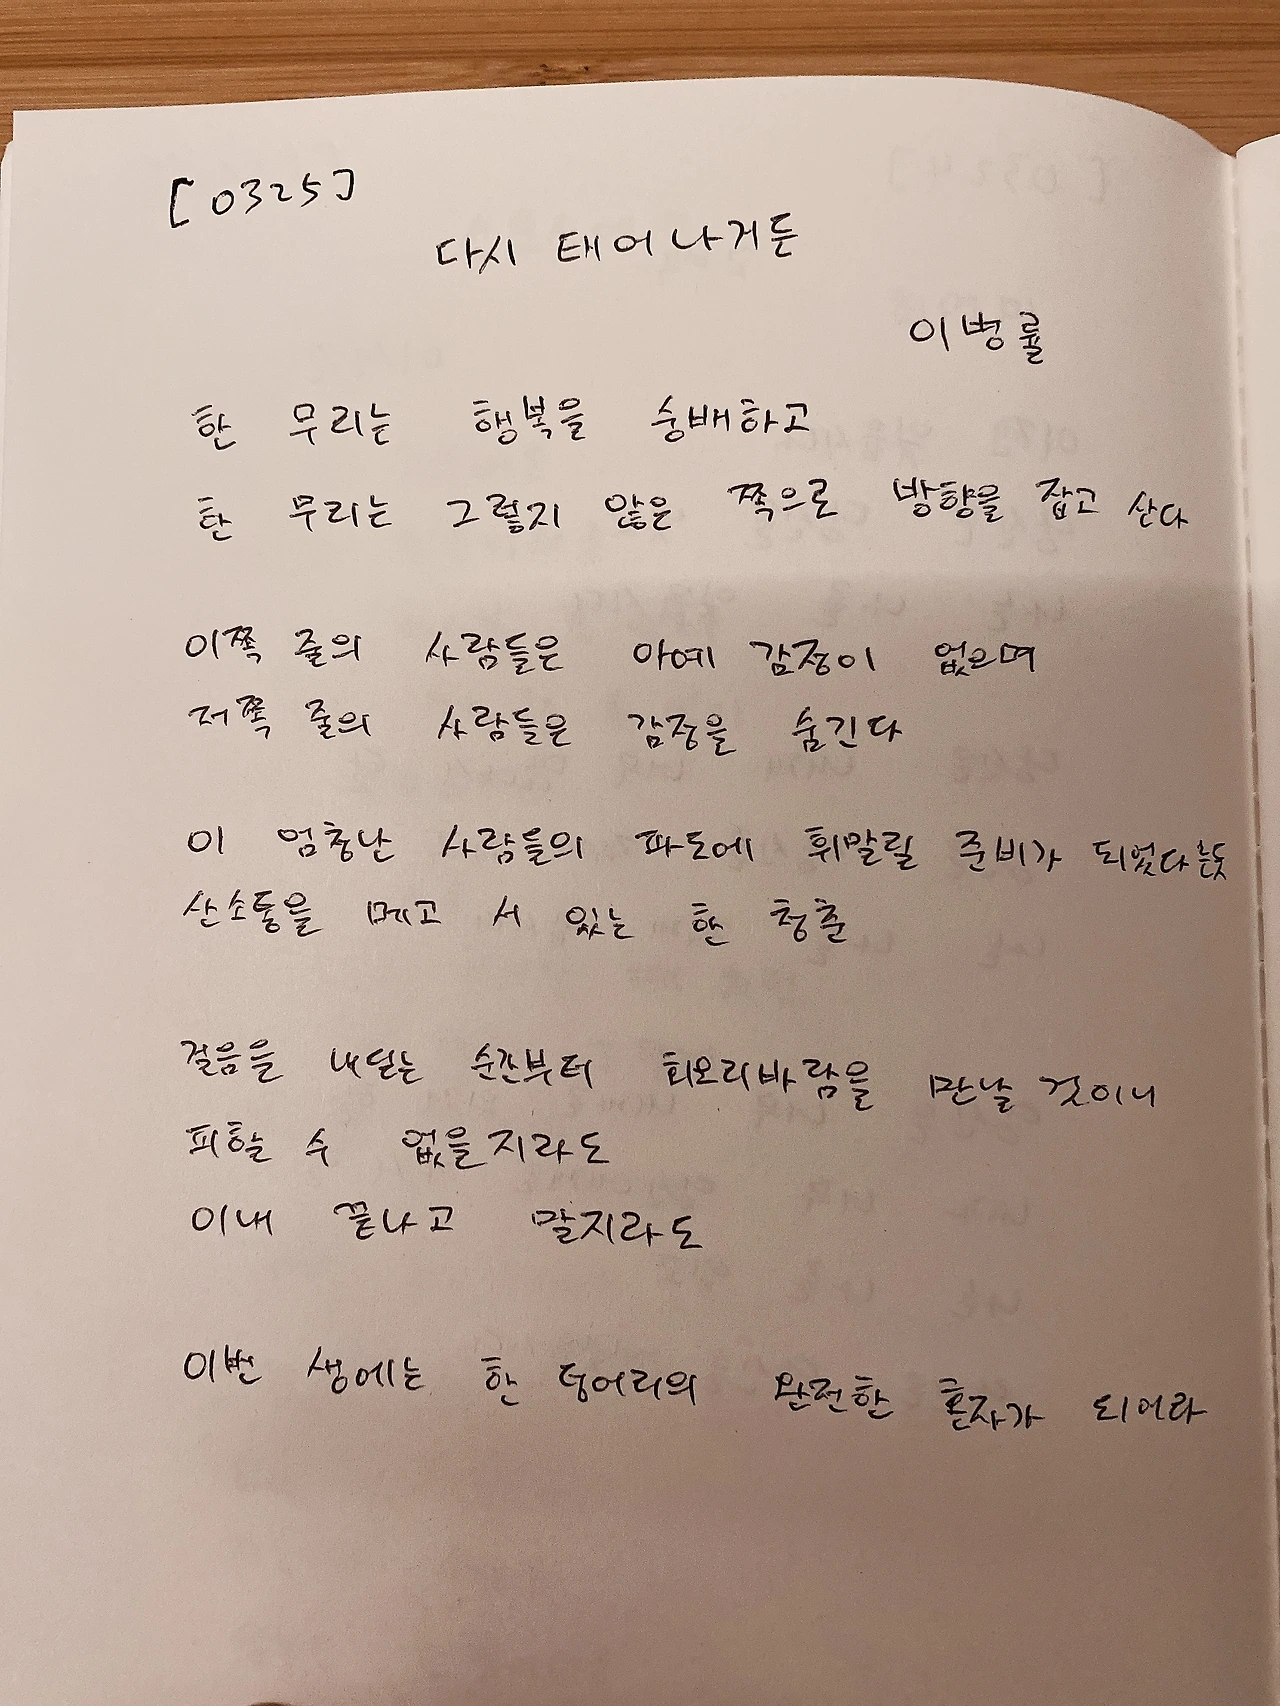 [0325]
다시 태어나거든
이병률
한 무리는 행복을 숭배하고
한 무리는 그렇지 않은 쪽으로 방향을 잡고 산다
이쪽 줄의 사람들은 아예 감정이 없으며
저쪽 줄의 사람들은 감정을 숨긴다
이 엄청난 사람들의 파도에 휘말릴 준비가 되었다는듯
산소통을 메고 서 있는 한 청춘
걸음을 내딛는 순간부터 회오리바람을 만날 것이니
피할 수 없을지라도
이내 끝나고 말지라도
이번 생에는 한 덩어리의 완전한 혼자가 되어라